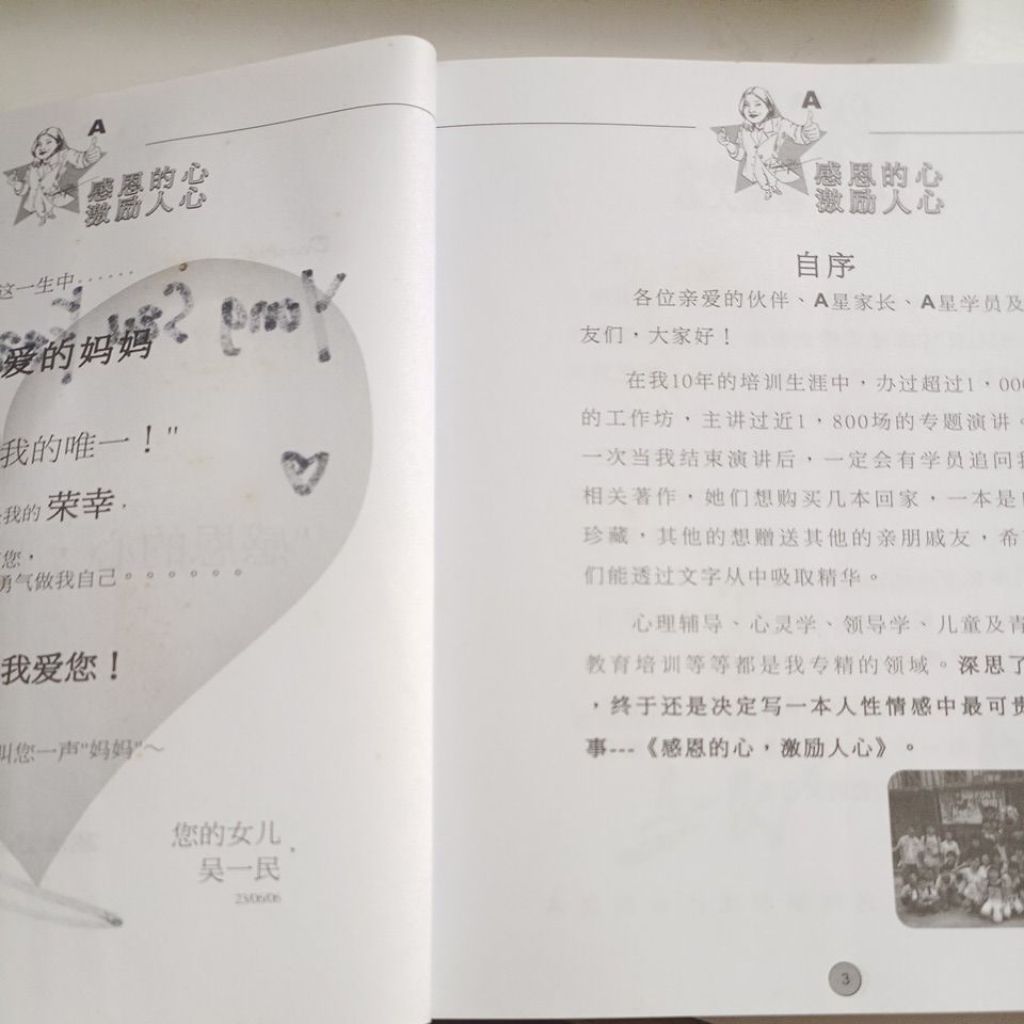 A
感恩的心
激励人心
这一生中······
爱的妈妈
我的唯一！"
我的 荣幸.
您，
勇气做我自己。。。。。。
我爱您！
叫您一声"妈妈"～
您的女儿
吴一民
23/06/06
A
感恩的心
激励人心
自序
各位亲爱的伙伴、A星家长、A星学员及
友们，大家好！
在我10年的培训生涯中，办过超过1，000
的工作坊，主讲过近1，800场的专题演讲。
一次当我结束演讲后，一定会有学员追问我
相关著作，她们想购买几本回家，一本是
珍藏，其他的想赠送其他的亲朋戚友，希
们能透过文字从中吸取精华。
心理辅导、心灵学、领导学、儿童及青
教育培训等等都是我专精的领域。深思了
，终于还是决定写一本人性情感中最可贵
事---《感恩的心，激励人心》。
3